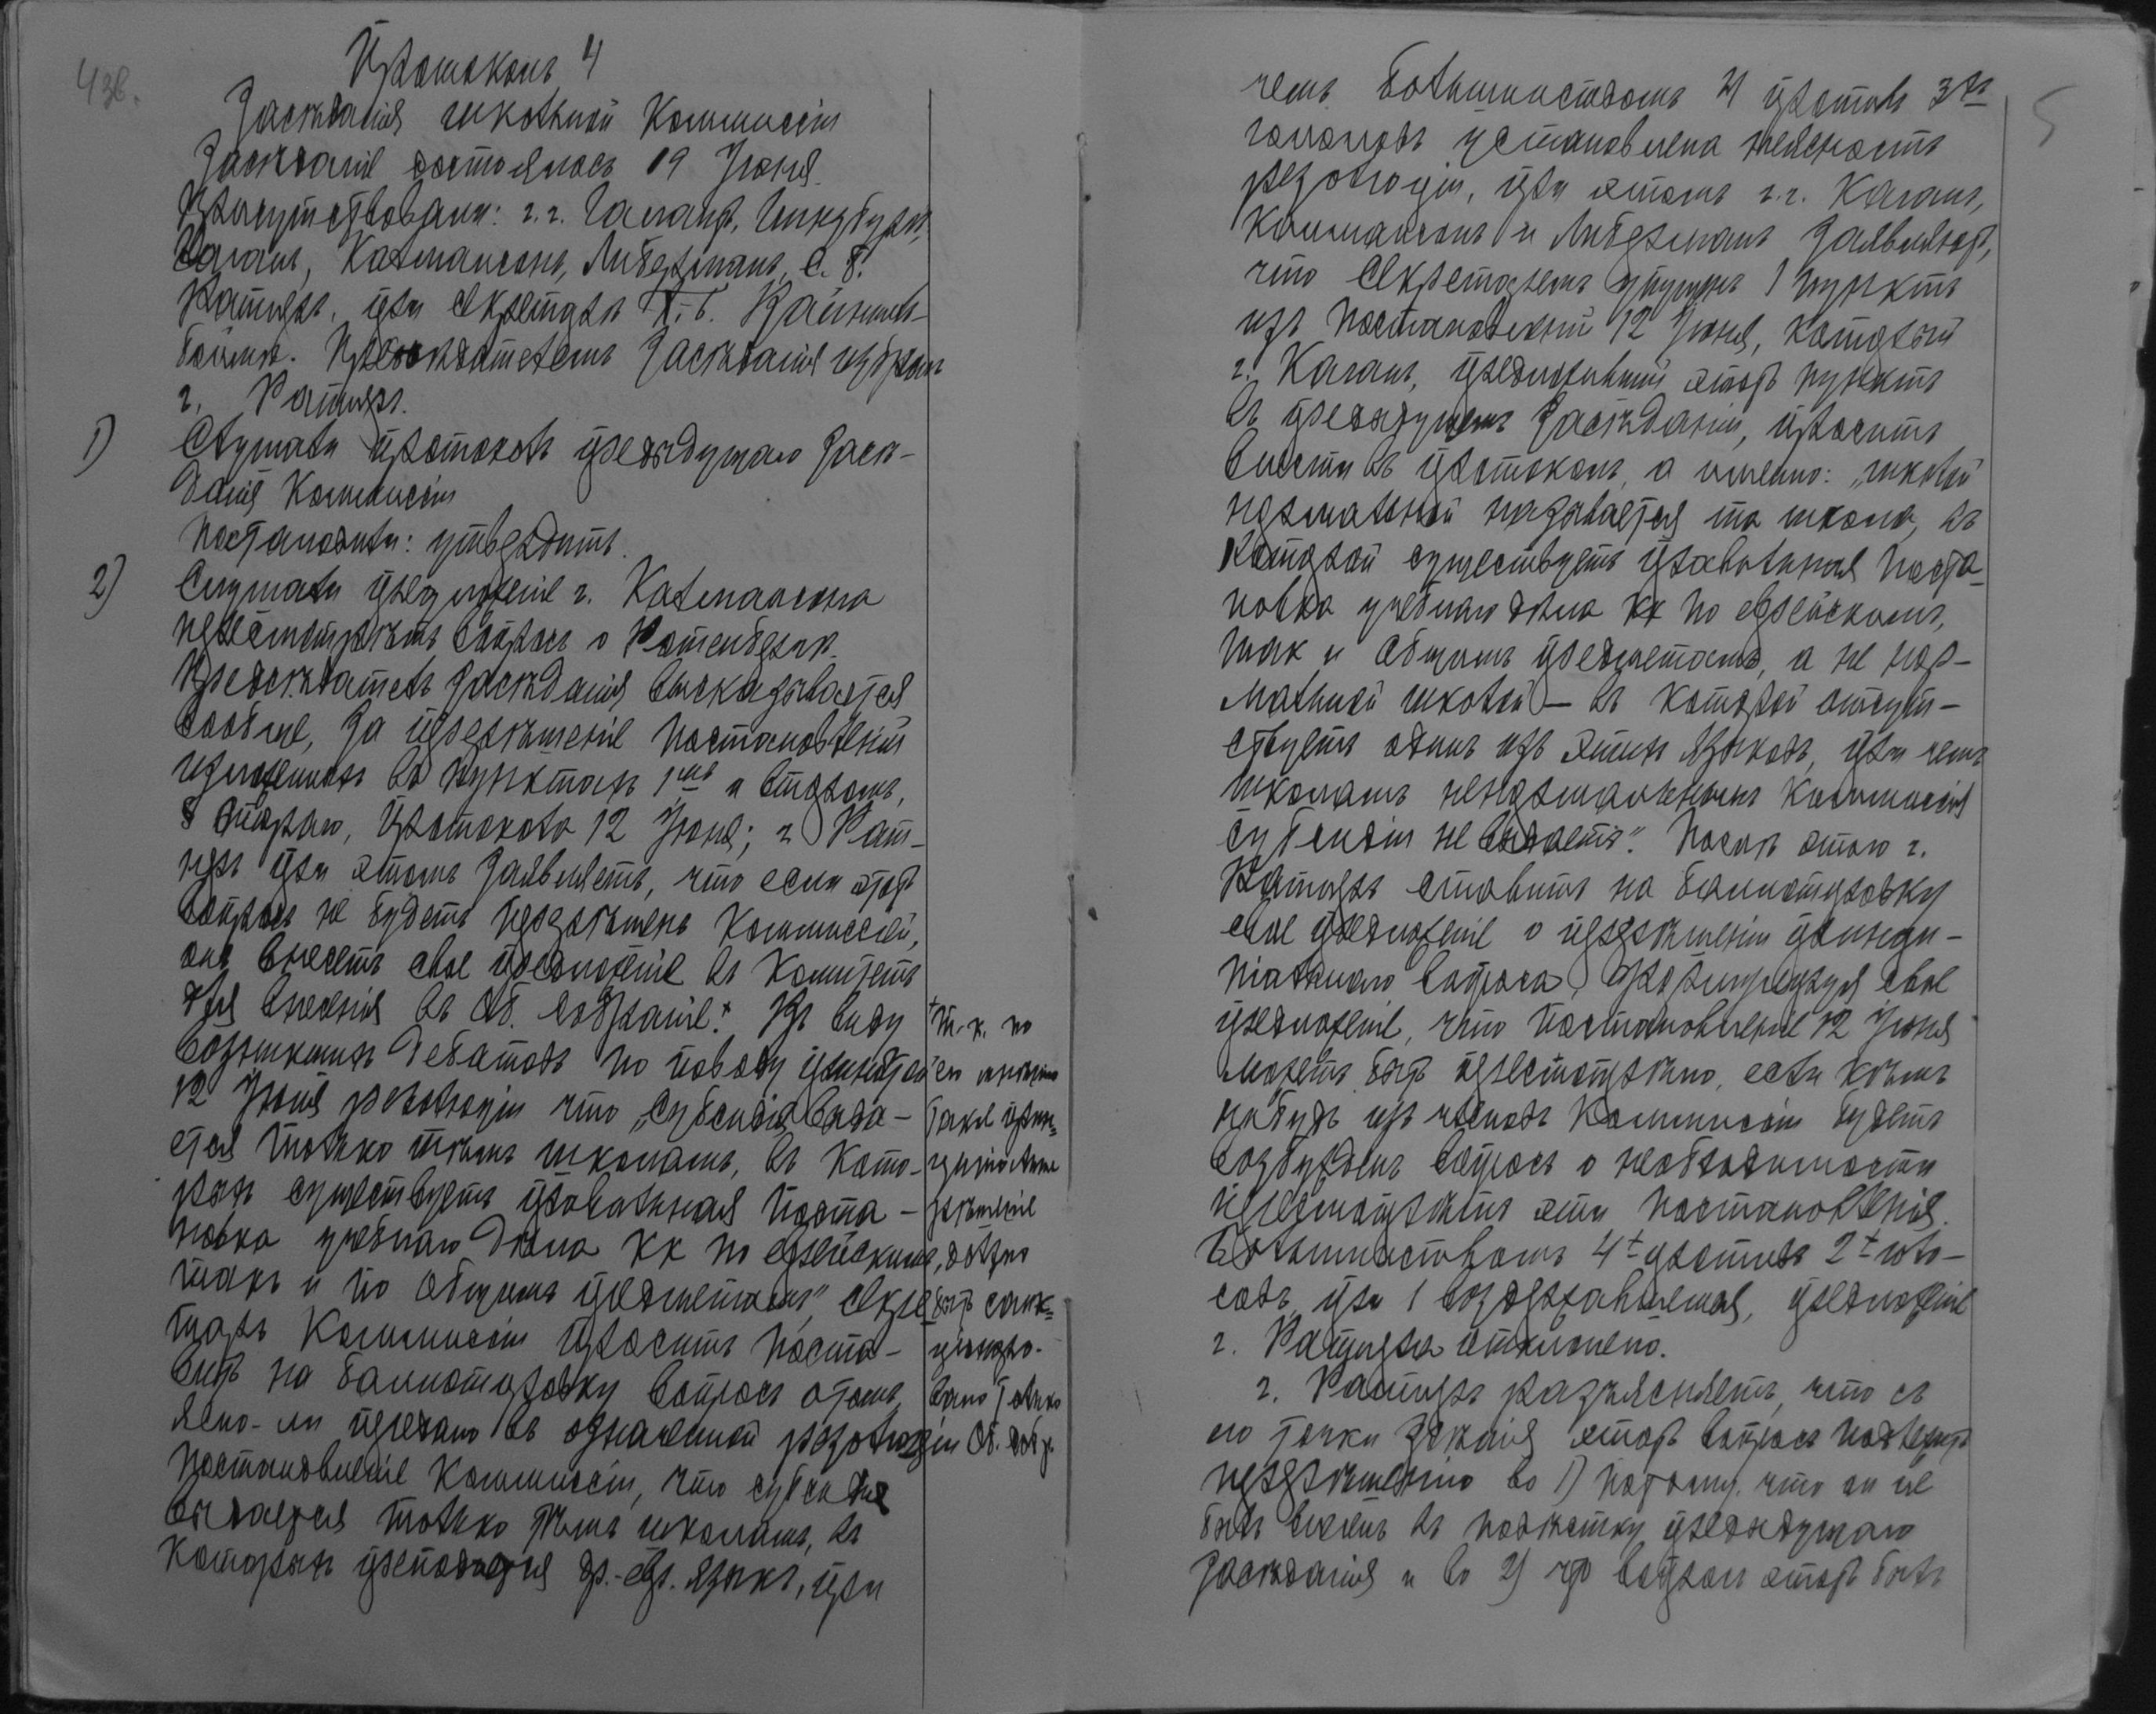 43в.
Протоколъ 4
Засѣданія школьной Коммиссіи
Засѣданіе состоялось 19 Іюня.
Присутствовали: г.г. Галантъ,
Каганъ, Кальмансонъ, Либерманъ, С. Б.
Ратнеръ, при секретарѣ
Предсѣдателемъ засѣданія избранъ
г. Ратнеръ.
1) Слушали протоколъ предыдущаго засѣ-
данія Коммиссіи
Постановили: утвердить.
2) Слушали предложеніе г. Кальмансона
пересмотрѣть вопросъ о Ротенбергѣ.
Предсѣдатель засѣданія высказывается
вообще, за перерѣшеніе постановленій
изложенныхъ въ пунктахъ 1мъ и второмъ,
§ второго, Протокола 12 Іюня; г. Рат-
неръ при этомъ заявляетъ, что если этотъ
вопросъ не будетъ перерѣшенъ Коммиссіей,
онъ внесетъ свое предложеніе въ Комитетъ
для внесенія въ Об. собраніе.+ Въ виду
возникшихъ дебатовъ по поводу принятой
12 Іюня резолюціи что „субсидія выда-
ется только тѣмъ школамъ, въ кото-
рыхъ существуетъ правильная поста-
новка учебнаго дѣла кк по еврейскимъ,
такъ и по общимъ предметамъ", секре-
тарь Коммиссіи проситъ поста-
вить на баллотировку вопросъ о томъ,
ясно-ли передано въ означенной резолюціи
постановленіе Коммиссіи, что субсидія
выдается только тѣмъ школамъ, въ
которыхъ преподается др.-евр. языкъ, при
+ т.к. по
его мнѣнію
такое прин-
ципіальное
рѣшеніе
должно
быть санк-
ціониро-
вано только
Об. собр.
5
чемъ большинствомъ 4 противъ 3хъ
голосовъ установлена неясность
резолюціи, при этомъ г.г. Каганъ,
Кальмансонъ и Либерманъ заявляютъ,
что секретаремъ упущенъ 1 пунктъ
изъ постановленій 12 Іюня, который
г. Каганъ, предложившій этотъ пунктъ
въ предыдущемъ засѣданіи, проситъ
внести въ протоколъ, а именно: „школой
нормальной называется та школа, въ
которой существуетъ правильная поста-
новка учебнаго дѣла кк по еврейскимъ,
так и общимъ предметамъ, а не нор-
мальной школой — въ которой отсут-
ствуетъ одинъ изъ этихъ языковъ, при чемъ
школамъ ненормальнымъ Коммиссія
субсидіи не выдаетъ". Послѣ этого г.
Ратнеръ ставитъ на баллотировку
свое предложеніе о перерѣшеніи принци-
піальнаго вопроса, свое
предложеніе, что постановленіе 12 Іюня
можетъ быть пересмотрѣно, если кѣмъ
нибудь изъ членовъ Коммиссіи будетъ
возбужденъ вопросъ о необходимости
пересмотрѣть эти постановленія.
Большинствомъ 4 противъ 2 голо-
совъ, при 1 воздержавшемся, предложеніе
г. Ратнера отклонено.
г. Ратнеръ разъясняетъ, что съ
его точки зрѣнія этотъ вопросъ подлежитъ
перерѣшенію во 1) потому, что он не
былъ внесенъ въ повѣстку предыдущаго
засѣданія и во 2) что вопросъ этотъ былъ